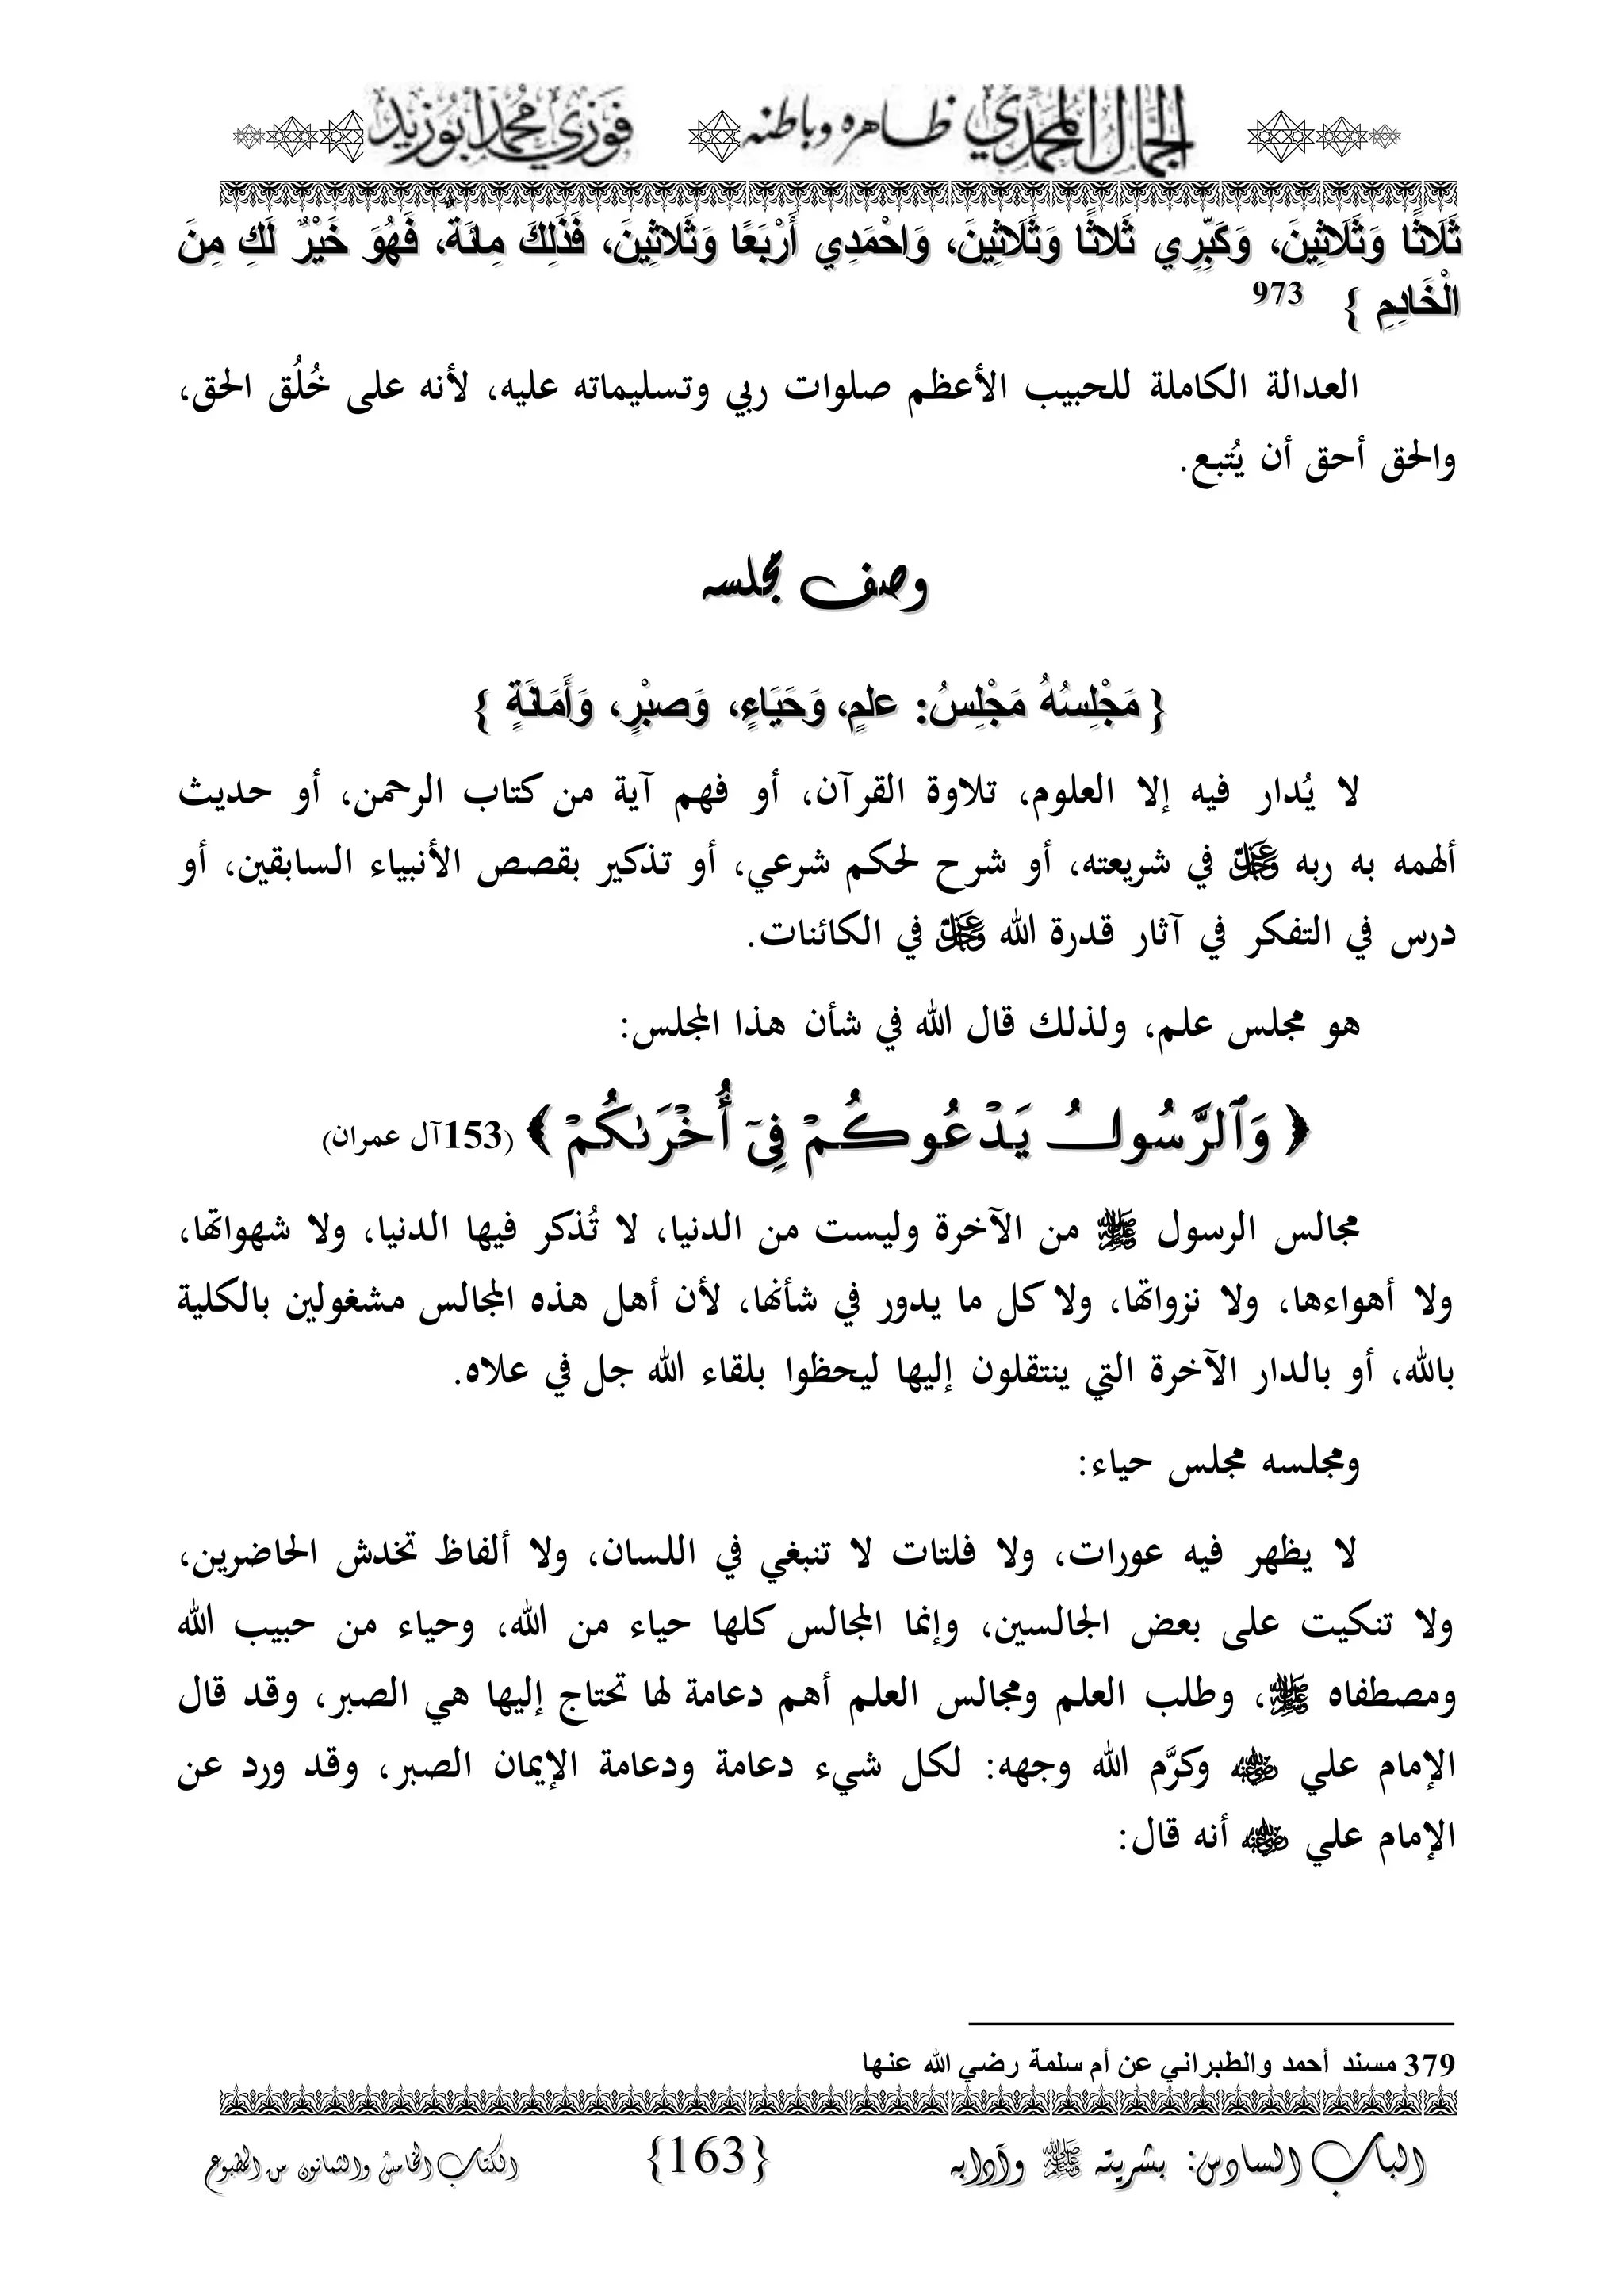 الجمال المحمدي ظاهره وباطنه فوزي محمد أبوزيد
ثَلَاثًا وَثَلَاثِينَ، وَكَبِّرِي ثَلَاثًا وَثَلَاثِينَ، وَاحْمَدِي أَرْبَعًا وَثَلَاثِينَ، فَذَلِكَ مِائَةٌ، فَهُوَ خَيْرٌ لَكِ مِنَ
الْخَادِمِ } 973
العدالة الكاملة للحبيب الأعظم صلوات ربي وتسليماته عليه، لأنه على خُلُق الحق،
والحق أحق أن يُتبع.
وصف مجلسه
{ مَجْلِسُهُ مَجْلِسُ: علمٍ، وَحَيَاءٍ، وَصبْرٍ، وَأَمَانَةٍ }
لا يُدار فيه إلا العلوم، تلاوة القرآن، أو فهم آية من كتاب الرحمن، أو حديث
ألهمه به ربه عزوجل في شريعته، أو شرح لحكم شرعي، أو تذكير بقصص الأنبياء السابقين، أو
درس في التفكر في آثار قدرة الله عزوجل في الكائنات.
هو مجلس علم، ولذلك قال الله في شأن هذا المجلس:
﴿ وَٱلرَّسُولُ يَدْعُوكُمْ فِىٓ أُخْرَىٰكُمْ ﴾ (153آل عمران)
مجالس الرسول ﷺ من الآخرة وليست من الدنيا، لا تُذكر فيها الدنيا، ولا شهواتها،
ولا أهواءها، ولا نزواتها، ولا كل ما يدور في شأنها، لأن أهل هذه المجالس مشغولين بالكلية
بالله، أو بالدار الآخرة التي ينتقلون إليها ليحظوا بلقاء الله جل في علاه.
ومجلسه مجلس حياء:
لا يظهر فيه عورات، ولا فلتات لا تنبغي في اللسان، ولا ألفاظ تخدش الحاضرين،
ولا تنكيت على بعض الجالسين، وإنما المجالس كلها حياء من الله، وحياء من حبيب الله
ومصطفاه ﷺ، وطلب العلم ومجالس العلم أهم دعامة لها تحتاج إليها هي الصبر، وقد قال
الإمام علي رضي الله عنه وكرَّم الله وجهه: لكل شيء دعامة ودعامة الإيمان الصبر، وقد ورد عن
الإمام علي رضي الله عنه أنه قال:
379 مسند أحمد والطبراني عن أم سلمة رضي الله عنها
الباب السادس: بشريته ﷺ وآدابه {163} الكتاب الخامس والثمانون من المطبوع